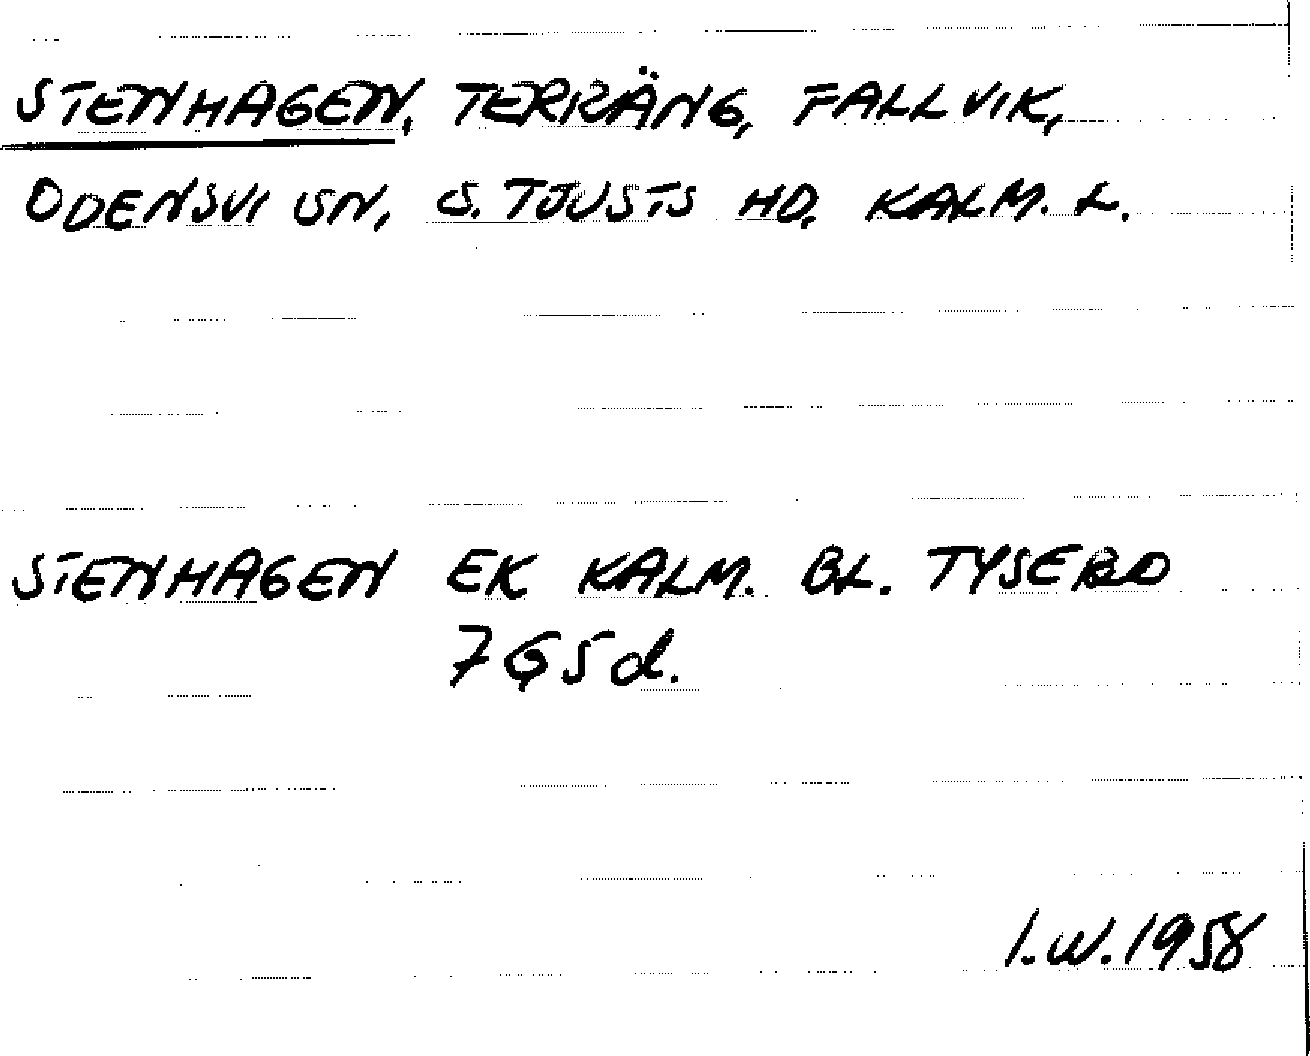 STENHAGEN, TERRÄNG, FALLVIK,
ODENSVI SN, S. TJUSTS HD, KALM. L.
STENHAGEN EK KALM. BL. TYSEBO
7G5d.
I.W. 1958